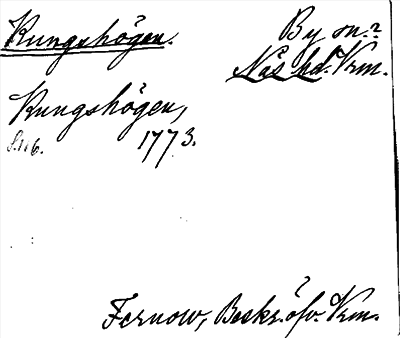 Kungshögen. By sn.
Näs hd. Vrm.
Kungshögen,
S. 116. 1773.
Fernow, Beskr. öfv. Vrm.